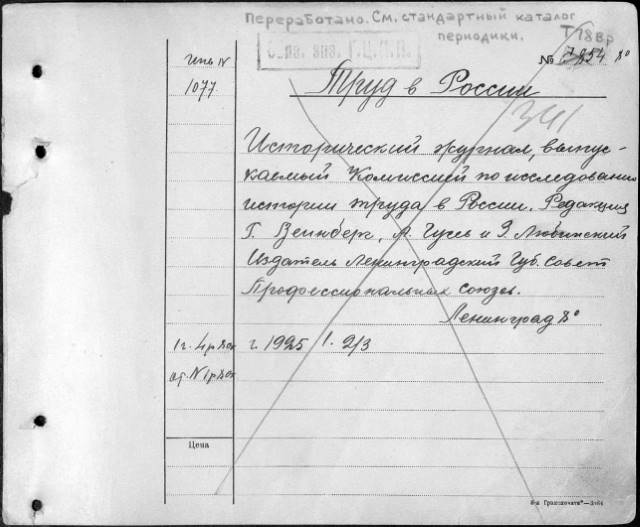 Переработано. См. стандартный каталог
периодики. Т78вр
№ 7854 8°
1077
Труд в России
341
Исторический журнал, выпус-
каемый Комиссией по исследованию
истории труда в России. Редакция
Г. Вейнберг, А. Гусь и Э. Любинский
Издатель Ленинградский Губ. Совет
Профессиональных Союзов.
Ленинград 8°
г. 1925 1. 2/3
Цена